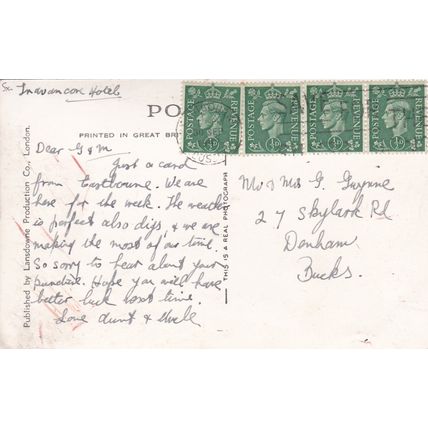 Ex. Travancore Hotel
POSTAGE REVENUE
POSTAGE REVENUE
POSTAGE REVENUE
POSTAGE REVENUE
PO
PRINTED IN GREAT BRI
Dear G & M
Just a card
from Eastbourne. We are
here for the week. The weather
is perfect also digs, & we are
making the most of our time.
So sorry to hear about your
puncture. Hope you will have
better luck next time.
Love Aunt & Uncle
Published by Lansdowne Production Co., London.
THIS IS A REAL PHOTOGRAPH
Mr & Mrs G.
27 Skylark Rd
Denham
Bucks.